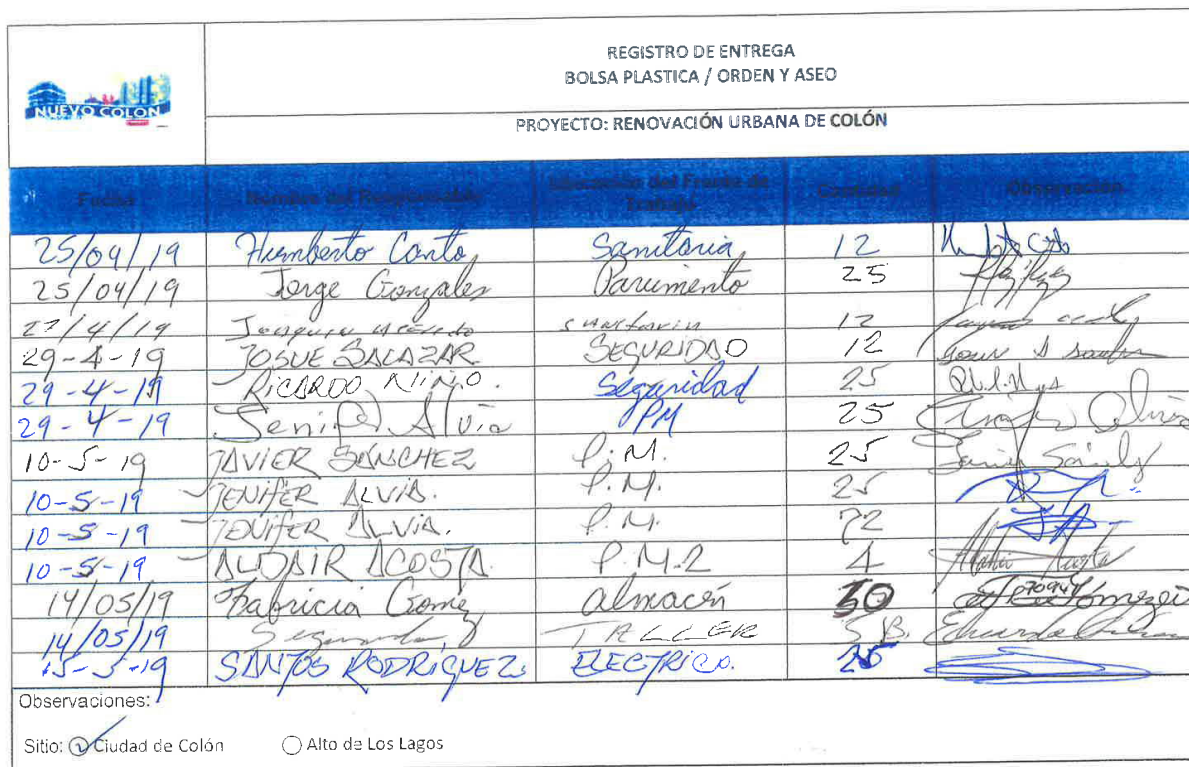 NUEVO COLON
REGISTRO DE ENTREGA
BOLSA PLASTICA / ORDEN Y ASEO
PROYECTO: RENOVACIÓN URBANA DE COLÓN
Fecha Nombre del Responsable Ubicación del Frente de Trabajo Cantidad Observación
25/04/19 Humberto Canto Sanitaria 12
25/04/19 Jorge Gonzales Pavimento 25
27/4/19 Joaquin 12
29-4-19 JOSUE SALAZAR SEGURIDAD 12
29-4-19 RICARDO NIÑO. Seguridad 25
29-4-19 Jenifer Alvia PM 25
10-5-19 JAVIER SANCHEZ P.M. 25
10-5-19 JENIFER ALVIA. P.M. 25
10-5-19 JENIFER ALVIA. P.M. 72
10-5-19 ALDAIR ACOSTA. P.M.2 4
14/05/19 Fabricia Gomez almacén 30
14/05/19 Segundo TALLER 5 B.
15-5-19 SANTOS RODRÍGUEZ ELECTRICO. 25
Observaciones:
Sitio: Ciudad de Colón Alto de Los Lagos